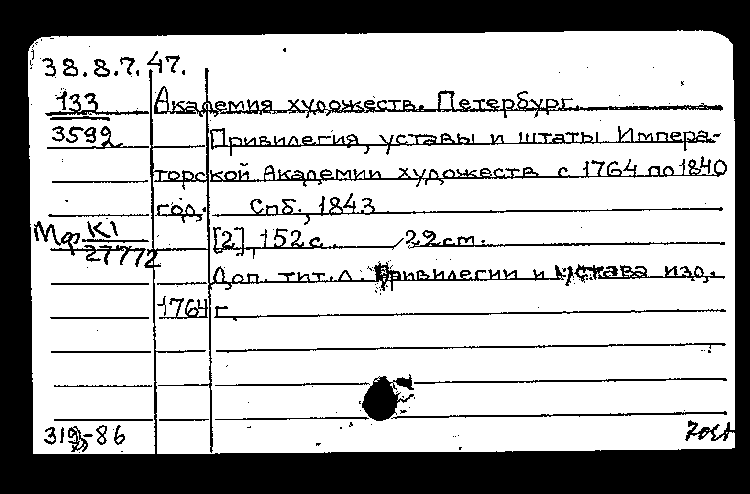 38.8.7.47.
133 Академия художеств. Петербург.
3592 Привилегия, уставы и штаты Импера-
торской Академии художеств с 1764 по 1840
год. Спб., 1843
Мф. К1 [2], 152 с. 22 cm.
27772
Доп. тит. л. Привилегии и устава изд.
1764 г.
-86